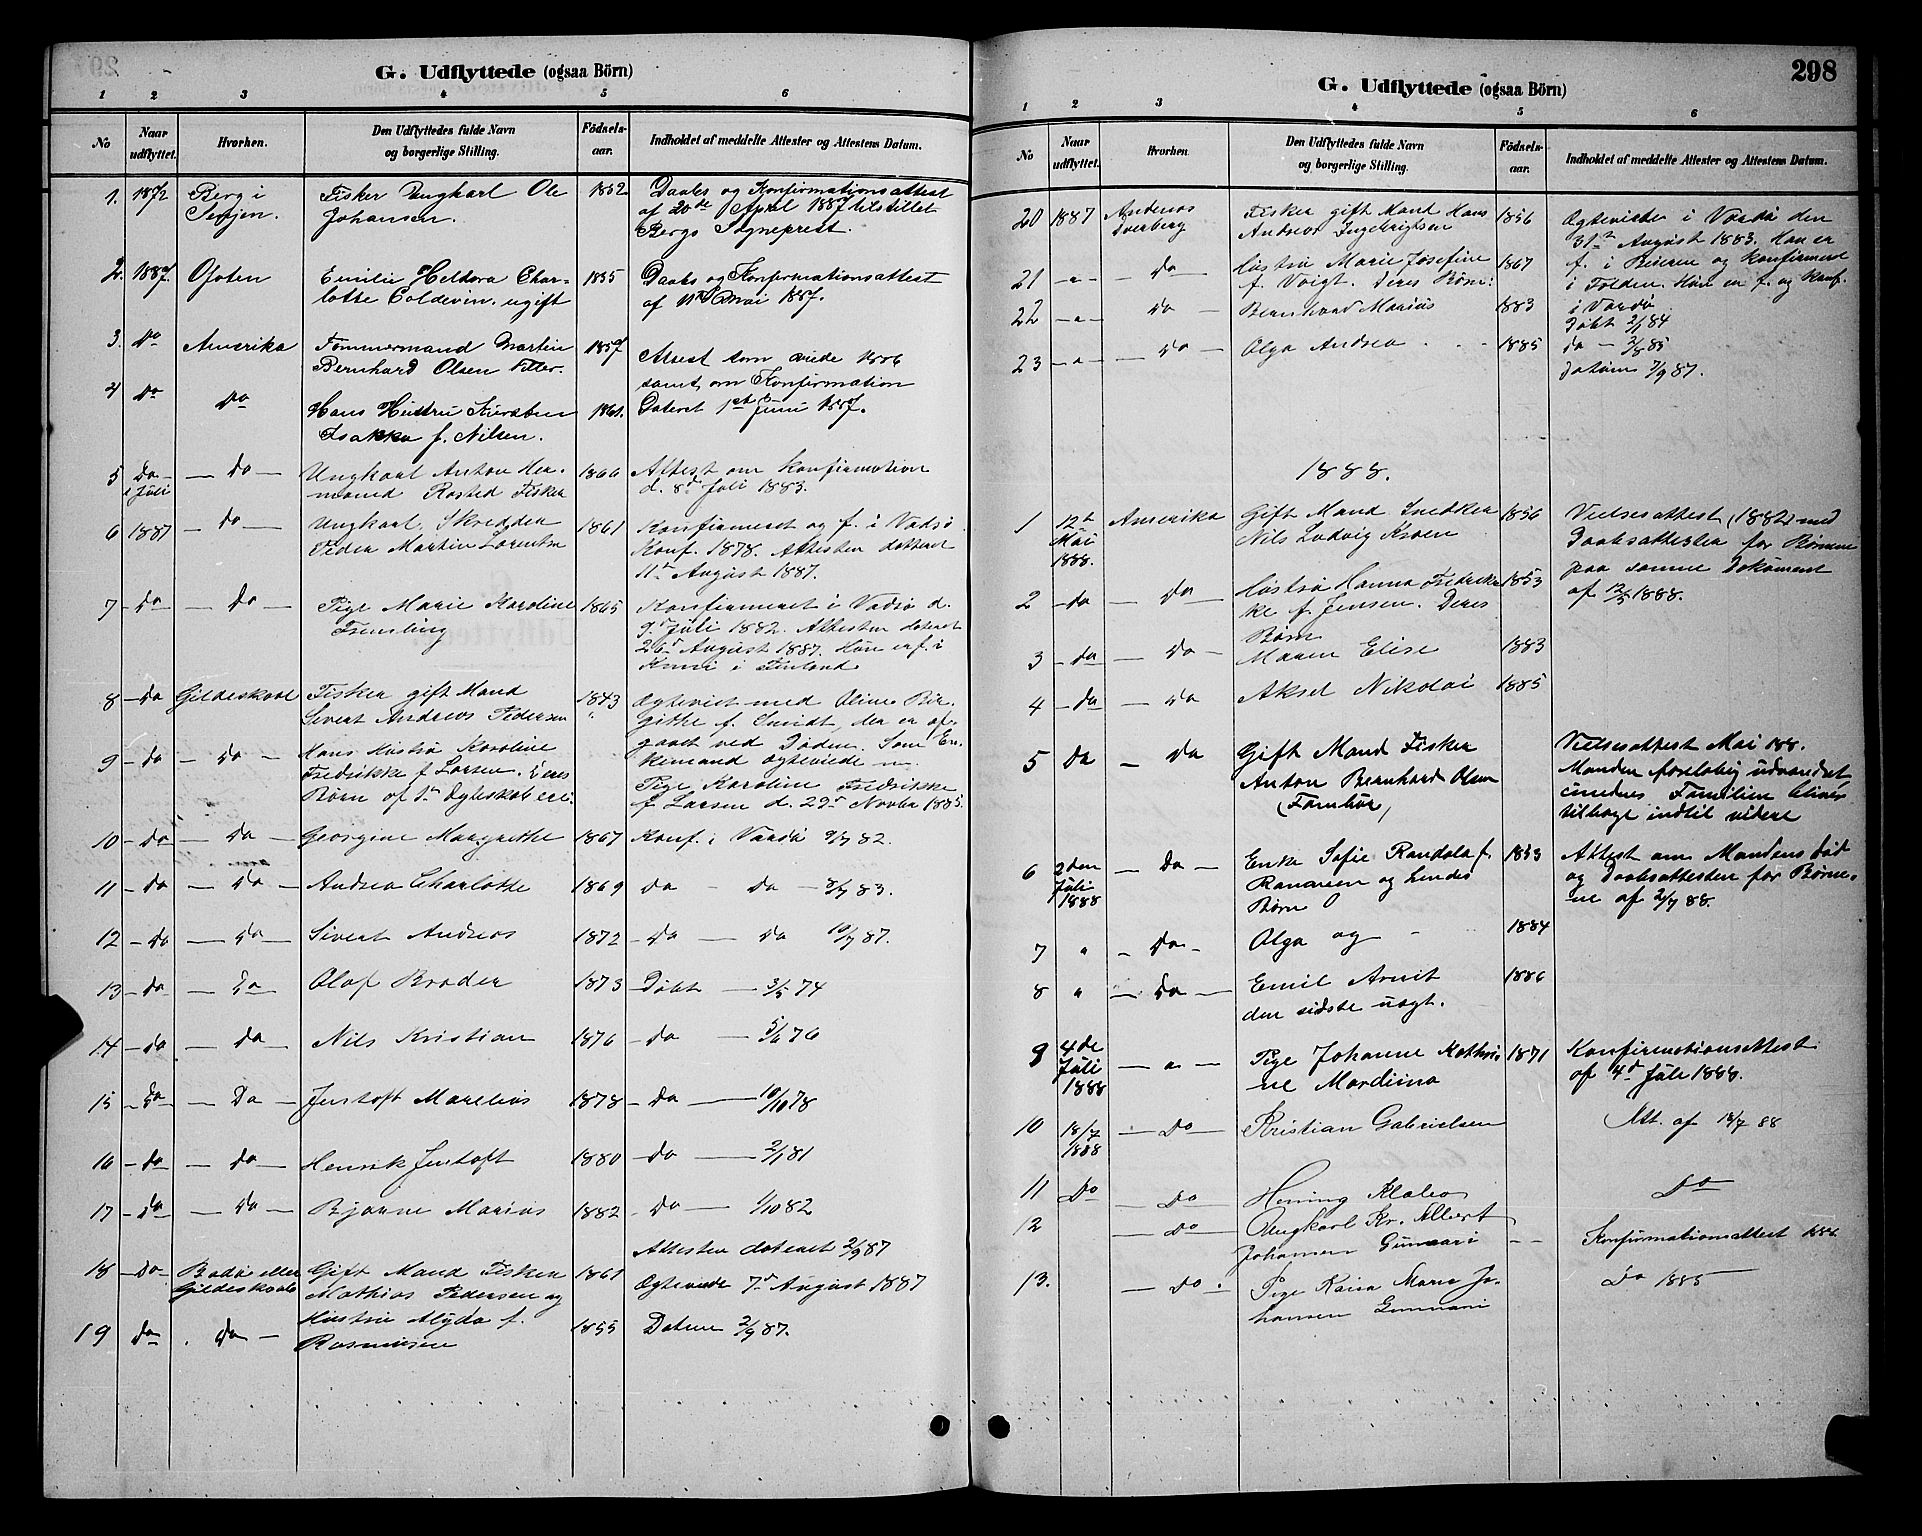 G. Udflyttede (ogsaa Börn)
1 2 3 4 5 6
No Naar udflyttet. Hvorhen. Den Udflyttedes fulde Navn og borgerlige Stilling. Födsels-aar. Indholdet af meddelte Attester og Attestens Datum.
1. Berg i Fisker Ungkarl Ole 1852 Daabs og Konfirmationsattest
Johansen. af 20de April 1887 tilstillet
Bergs Sogneprest.
2. 1887. Ofoten Emilie Heldora Char- 1835 Daabs og Konfirmationsattest
lotte Coldevin. ugift af Mai 1887.
3. Do Amerika Tømmermand Martin 1857 Attest som viede 1886
Bernhard Olsen samt om Konfirmation
4 Do Do Hans Hustru 1861. Dateret 1ste Juni 1887.
f. Nilsen.
5 Do i Juli Do Ungkarl Anton Her- 1866 Attest om Konfirmation
mand Rosted Fisker d. 8d Juli 1883.
6 1887 Do Ungkarl. Skredder 1861 Konfirmeret og f. i Vadsø.
Peder Martin Lorentsen Konf. 1878. Attesten datteret
11te August 1887.
7 Do Do Pige Marie Karoline 1865 Konfirmeret i Vadsø d.
9d Juli 1882. Attesten dateret
26d August 1887. Hun er f. i
i Finland
8 Do Gildeskaal Fisker gift Mand 1843 Egteviet med Oline Bir-
Sivert Andreas Pedersen githe f. Smidt, der er af-
gaaet ved Døden. Som En-
9 Do Do Hans Hustru Karoline kemand egteviede
Fredrikke f Larsen. Deres Pige Karoline Fredrikke
Børn af 1ste Egteskab ere: f Larsen d. 29d Novbr 1885.
10 Do Do Georgine Margrethe 1867 Konf. i Vardø 9/7 82.
11 Do Do Andrea Charlotte 1869 Do Do 8/7 83.
12 Do Do Sivert Andreas 1872 Do Do 10/7 87.
13 Do Do Olaf Broder 1873 Døbt 3/5 74
14 Do Do Nils Kristian 1876 Do 5/6 76
15 Do Do Jentoft Marelius 1878 Do 10/10 78
16 Do Do Henrik Jentoft 1880 Do 2/1 81
17 Do Do Bjarne Marius 1882 Do 1/10 82
Attesten dateret 2/9 87
18 Do Bodø eller Gildeskaal Gift Mand Fisker 1861 Egteviede 7d August 1887
Mathias Pedersen og
19 Do Do Hustru Alyda f. 1855 Datum 2/9 87.
Rasmussen
298
G. Udflyttede (ogsaa Börn)
1 2 3 4 5 6
No Naar udflyttet. Hvorhen. Den Udflyttedes fulde Navn og borgerlige Stilling. Födsels-aar. Indholdet af meddelte Attester og Attestens Datum.
20 1887 Andenes Fisker gift Mand Hans 1856 Egteviede i Vardø den
Dverberg Andreas Ingebrigtsen 31te August 1883. Han er
21 Do Hustru Marie Josefine 1867 f. i Beieren og konfirmeret
f. Voigt. Deres Børn: i Folden. Hun er f. og konf.
22 Do Bernhard Marius 1883 i Vardø.
Døbt 2/1 84
23 Do Olga Andrea 1885 Do 2/8 85
Datum 7/9 87.
1888.
1 12te Mai 1888. Amerika Gift Mand Snedker 1856 Vielsesattest (1882) med
Nils Ludvig Kroen Daabsattester for Børnene
2 Do Do Hustru Hanna Fredrik- 1853 paa samme Dokument
ke f. Jensen. Deres af 12/5 1888.
Børn
3 Do Do Maren Elise 1883
4 Do Do Aksel Nikolai 1885
5 Do Do Gift Mand Fisker Vielsesattest Mai 188.
Anton Bernhard Olsen Manden foreløbig udvandret
imedens Familien bliver
tilbage indtil videre
6 2den Juli 1888 Do Enke Sofie Randola f. 1853 Attest om Mandens død
og hendes og Daabsattesten for Børne-
Børn ne af 2/7 88.
7 " Do Olga og 1884
8 " Do Emil Arvit 1886
den sidste uegt.
9 4de Juli 1888 Pige Johanne Kathri- 1871 Konfirmationsattest
ne Mardima af 4d Juli 1888.
10 18/7 1888 Do Kristian Gabrielsen Att. af 18/7 88
11 Do Do Henning Do
12 Do Ungkarl Kr. Albert Konfirmationsattest
Johansen
13. Do Pige Kaisa Maria Jo- Do 1885
hansen